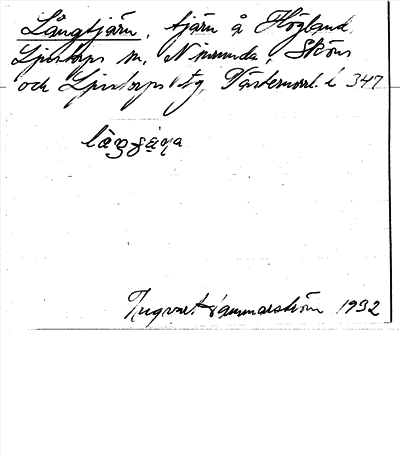 Långtjärn, tjärn å Högland,
Ljustorps sn, N immunda, Sköns
och Ljustorps tg, Västernorrl. l. 347
Ingvar Hammarström 1932